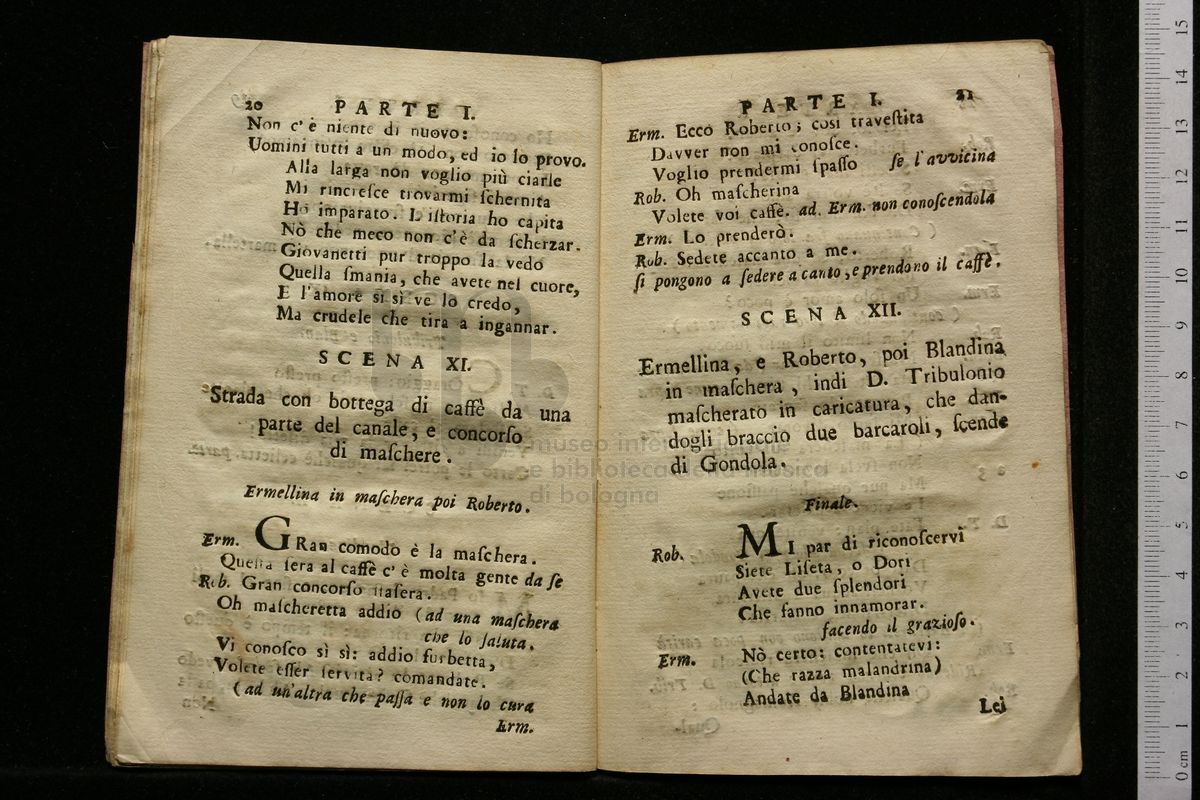 20 PARTE I.
Non c'è niente di nuovo:
Uomini tutti a un modo, ed io lo provo.
Alla larga non voglio più ciarle
Mi rincreſce trovarmi ſchernita
Ho imparato. L'iſtoria ho capita
Nò che meco non c'è da ſcherzar.
Giovanetti pur troppo la vedo
Quella ſmania, che avete nel cuore,
E l'amore sì sì ve lo credo,
Ma crudele che tira a ingannar.
SCENA XI.
Strada con bottega di caffè da una
parte del canale, e concorſo
di maſchere.
Ermellina in maſchera poi Roberto.
Erm. GRan comodo è la maſchera.
Queſta ſera al caffè c'è molta gente da ſe
Rob. Gran concorſo ſtaſera.
Oh maſcheretta addio (ad una maſchera
che lo ſaluta.
Vi conoſco sì sì: addio furbetta,
Volete eſſer ſervita? comandate.
(ad un'altra che paſſa e non lo cura
Erm.
PARTE I. 21
Erm. Ecco Roberto; così traveſtita
Davver non mi conoſce.
Voglio prendermi ſpaſſo ſe l'avvicina
Rob. Oh maſcherina
Volete voi caffè. ad. Erm. non conoſcendola
Erm. Lo prenderò.
Rob. Sedete accanto a me.
ſi pongono a ſedere a canto, e prendono il caffè.
SCENA XII.
Ermellina, e Roberto, poi Blandina
in maſchera, indi D. Tribulonio
maſcherato in caricatura, che dan-
dogli braccio due barcaroli, ſcende
di Gondola.
Finale.
Rob. MI par di riconoſcervi
Siete Liſeta, o Dori
Avete due ſplendori
Che fanno innamorar.
facendo il grazioſo.
Erm. Nò certo: contentatevi:
(Che razza malandrina)
Andate da Blandina
Lei
museo internazionale
e biblioteca della musica
di bologna
0 cm 1 2 3 4 5 6 7 8 9 10 11 12 13 14 15